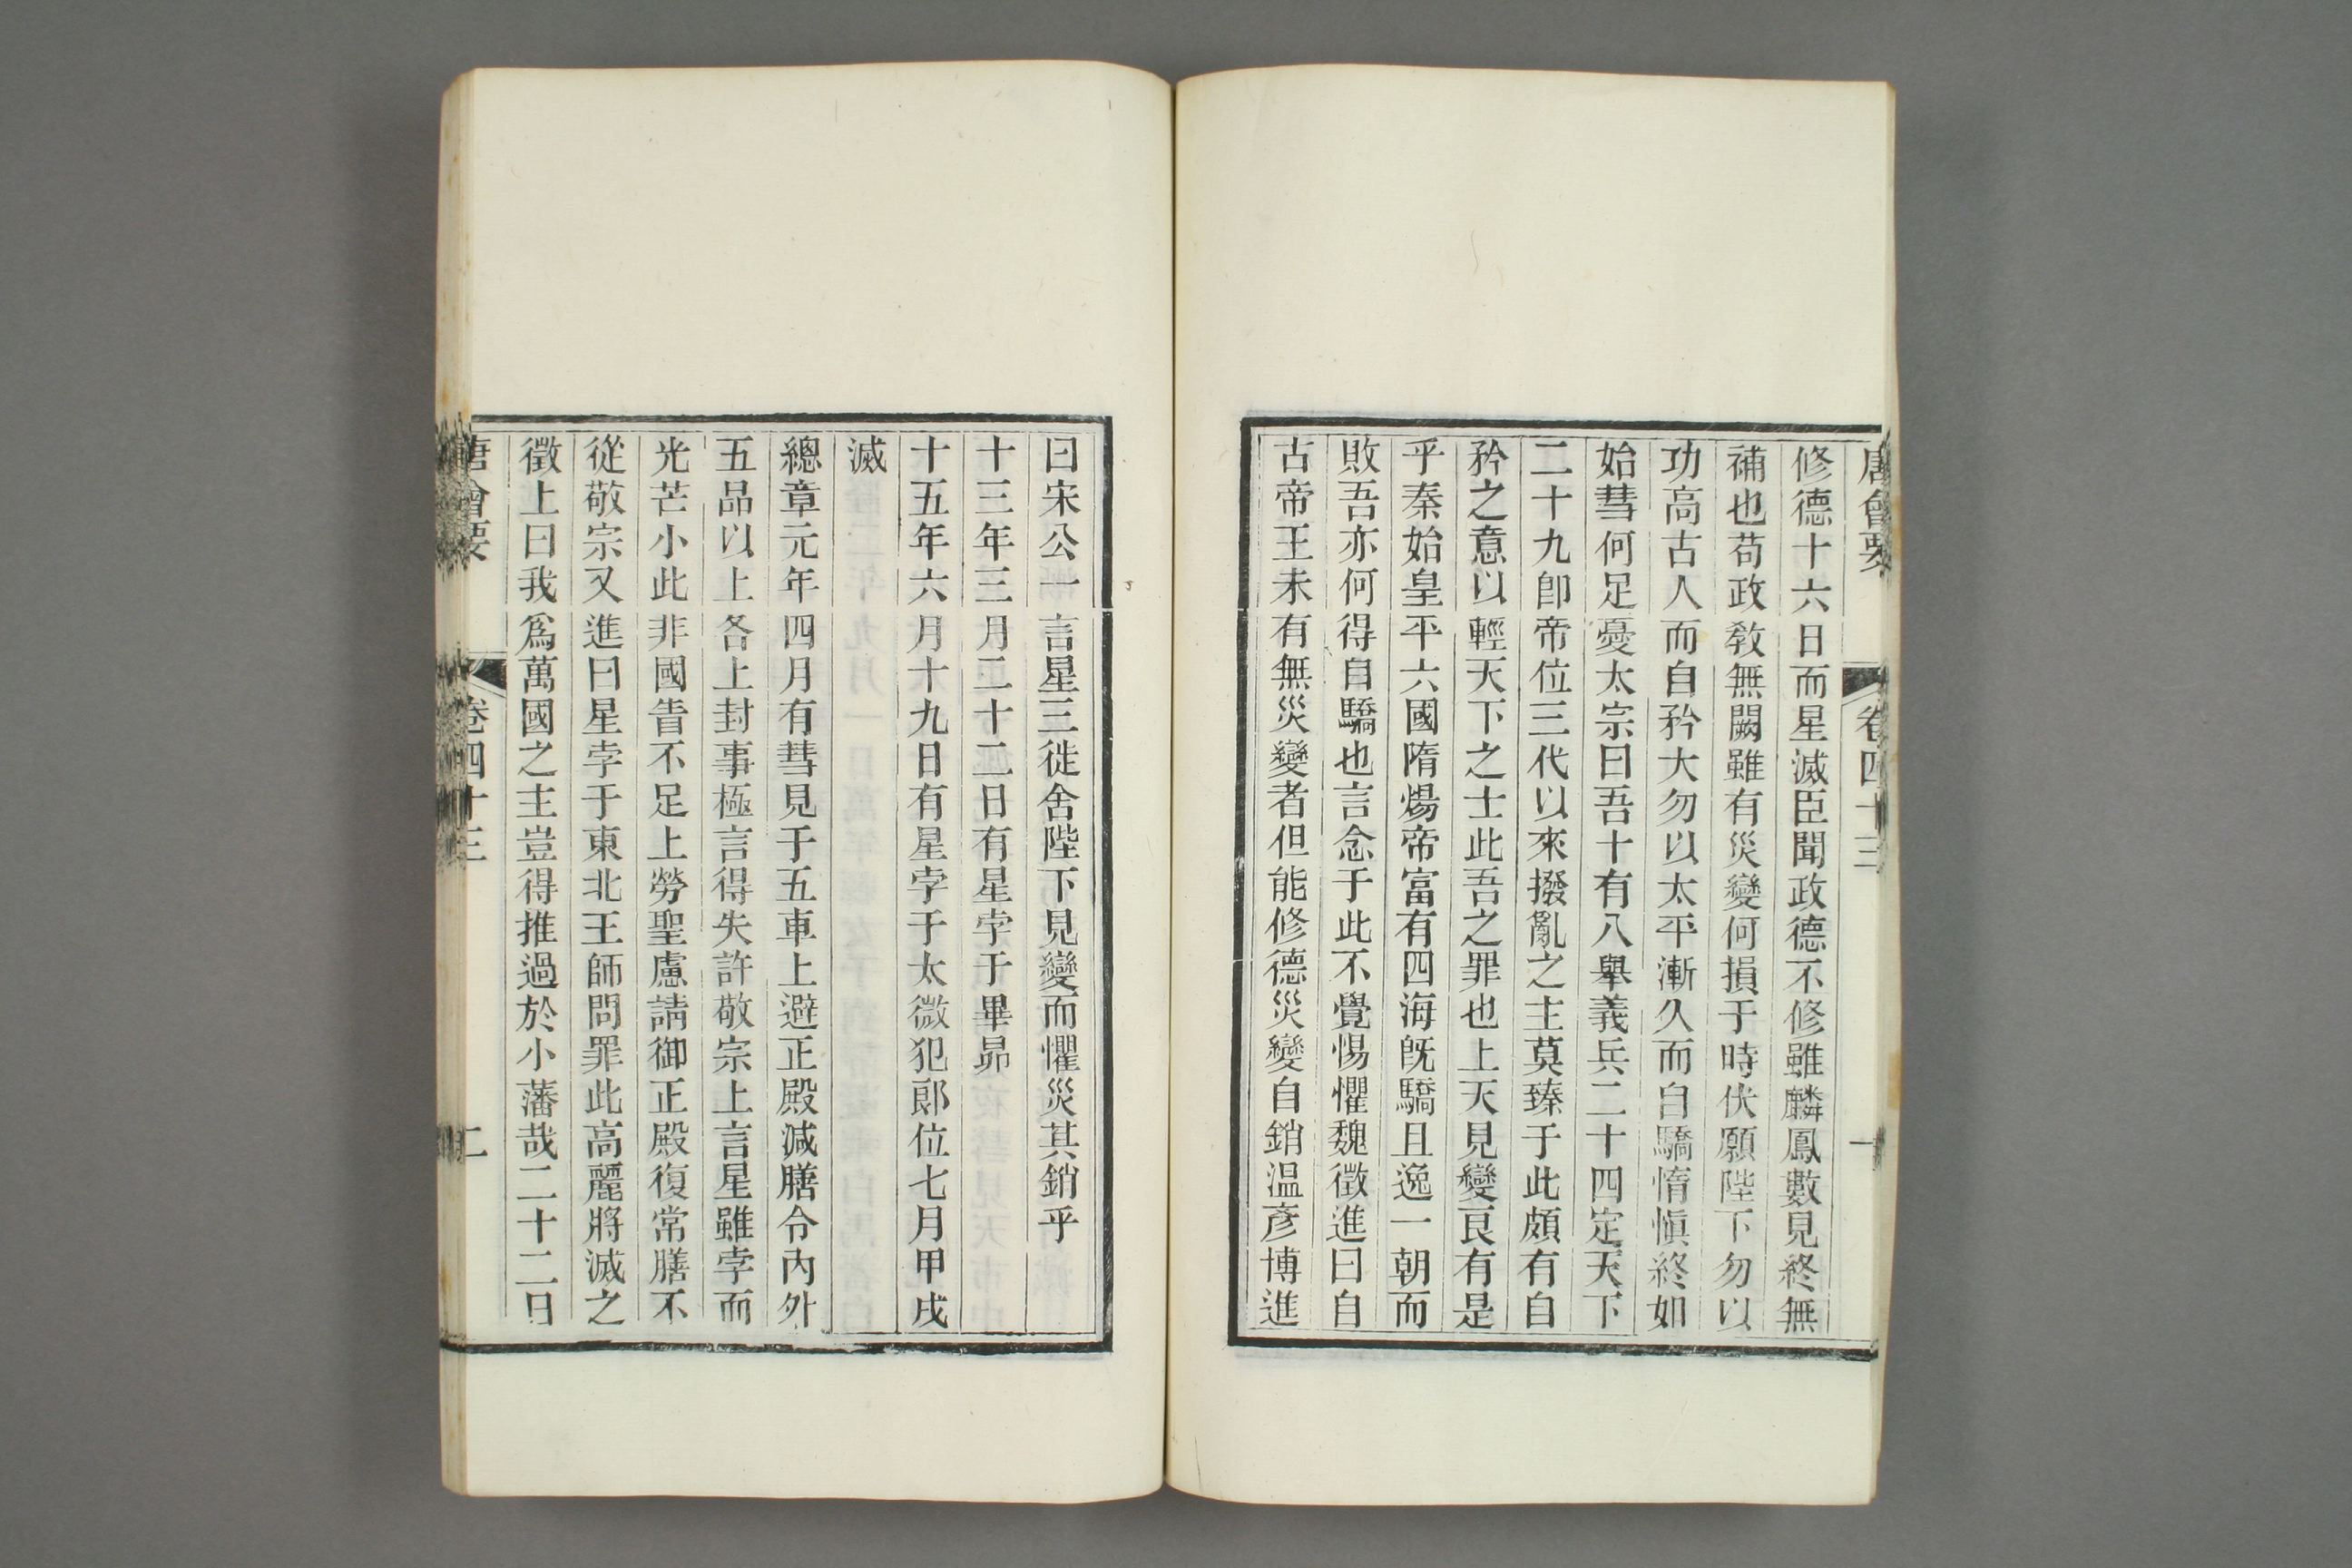 唐會要 卷四十三 一
修德十六日而星滅臣聞政德不修雖麟鳳數見終無
補也苟政敎無闕雖有災變何損于時伏願陛下勿以
功高古人而自矜大勿以太平漸久而自驕惰愼終如
始彗何足憂太宗曰吾十有八舉義兵二十四定天下
二十九卽帝位三代以來撥亂之主莫臻于此頗有自
矜之意以輕天下之士此吾之罪也上天見變良有是
乎秦始皇平六國隋煬帝富有四海旣驕且逸一朝而
敗吾亦何得自驕也言念于此不覺惕懼魏徵進曰自
古帝王未有無災變者但能修德災變自銷温彥博進
曰宋公一言星三徙舍陛下見變而懼災其銷乎
十三年三月二十二日有星孛于畢昴
十五年六月十九日有星孛于太微犯郞位七月甲戌
滅
總章元年四月有彗見于五車上避正殿減膳令內外
五品以上各上封事極言得失許敬宗上言星雖孛而
光芒小此非國眚不足上勞聖慮請御正殿復常膳不
從敬宗又進曰星孛于東北王師問罪此高麗將滅之
徵上曰我爲萬國之主豈得推過於小藩哉二十二日
唐會要 卷四十三 二